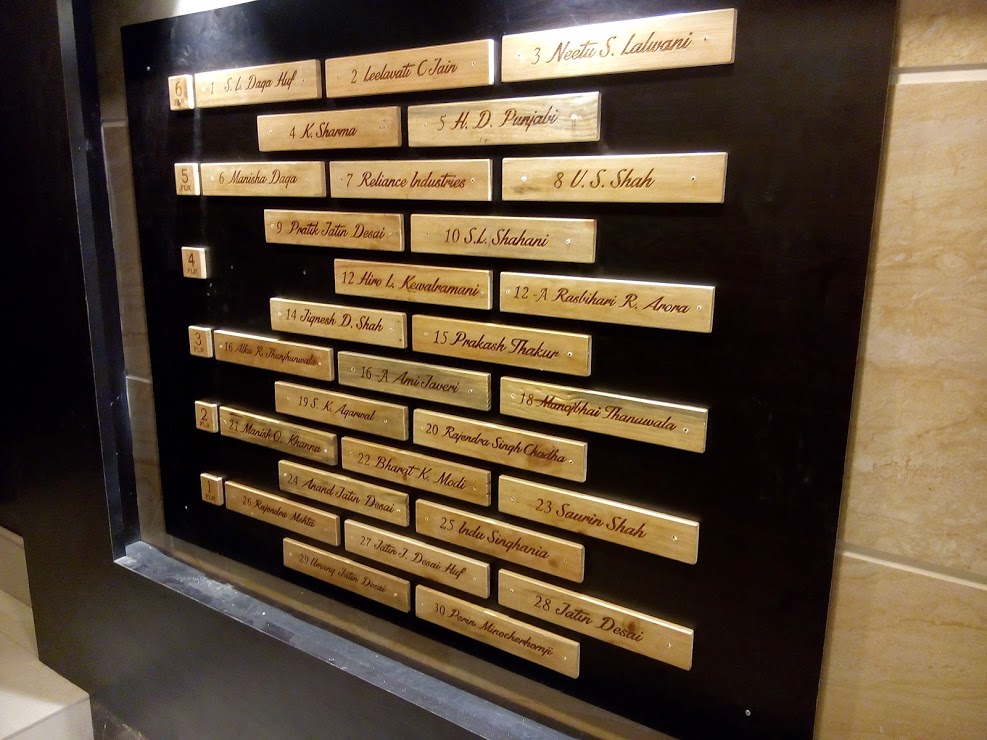 6 FLR 1 S. L. Daga Huf 2 Leelavati C Jain 3 Neetu S. Lalwani
4 K. Sharma 5 H. D. Punjabi
5 FLR 6 Manisha Daga 7 Reliance Industries 8 U. S. Shah
9 Pratik Jatin Desai 10 S.L. Shahani
4 FLR 12 Hiro L. Kewalramani 12 -A Rasbihari R. Arora
14 Jignesh D. Shah 15 Prakash Thakur
3 FLR 16 Alka R. Jhunjhunwala 16 -A Ami Javeri 18 Manojbhai Thanawala
19 S. K. Agarwal 20 Rajendra Singh Chadha
2 FLR 21 Manish O. Khanna 22 Bharat K. Modi 23 Saurin Shah
24 Anand Jatin Desai 25 Indu Singhania
1 FLR 26 Rajendra Mohta 27 Jatin J. Desai Huf 28 Jatin Desai
29 Umang Jatin Desai 30 Perin Minocherhomji